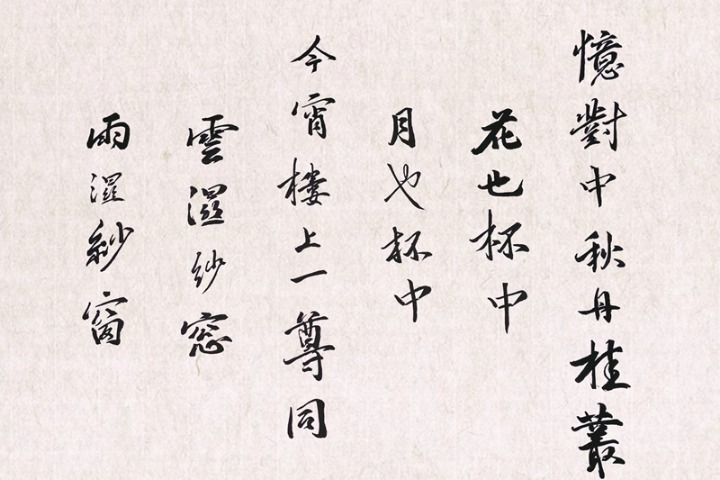 憶對中秋丹桂叢
花也杯中
月也杯中
今宵樓上一尊同
雲濕紗窓
雨濕紗窗